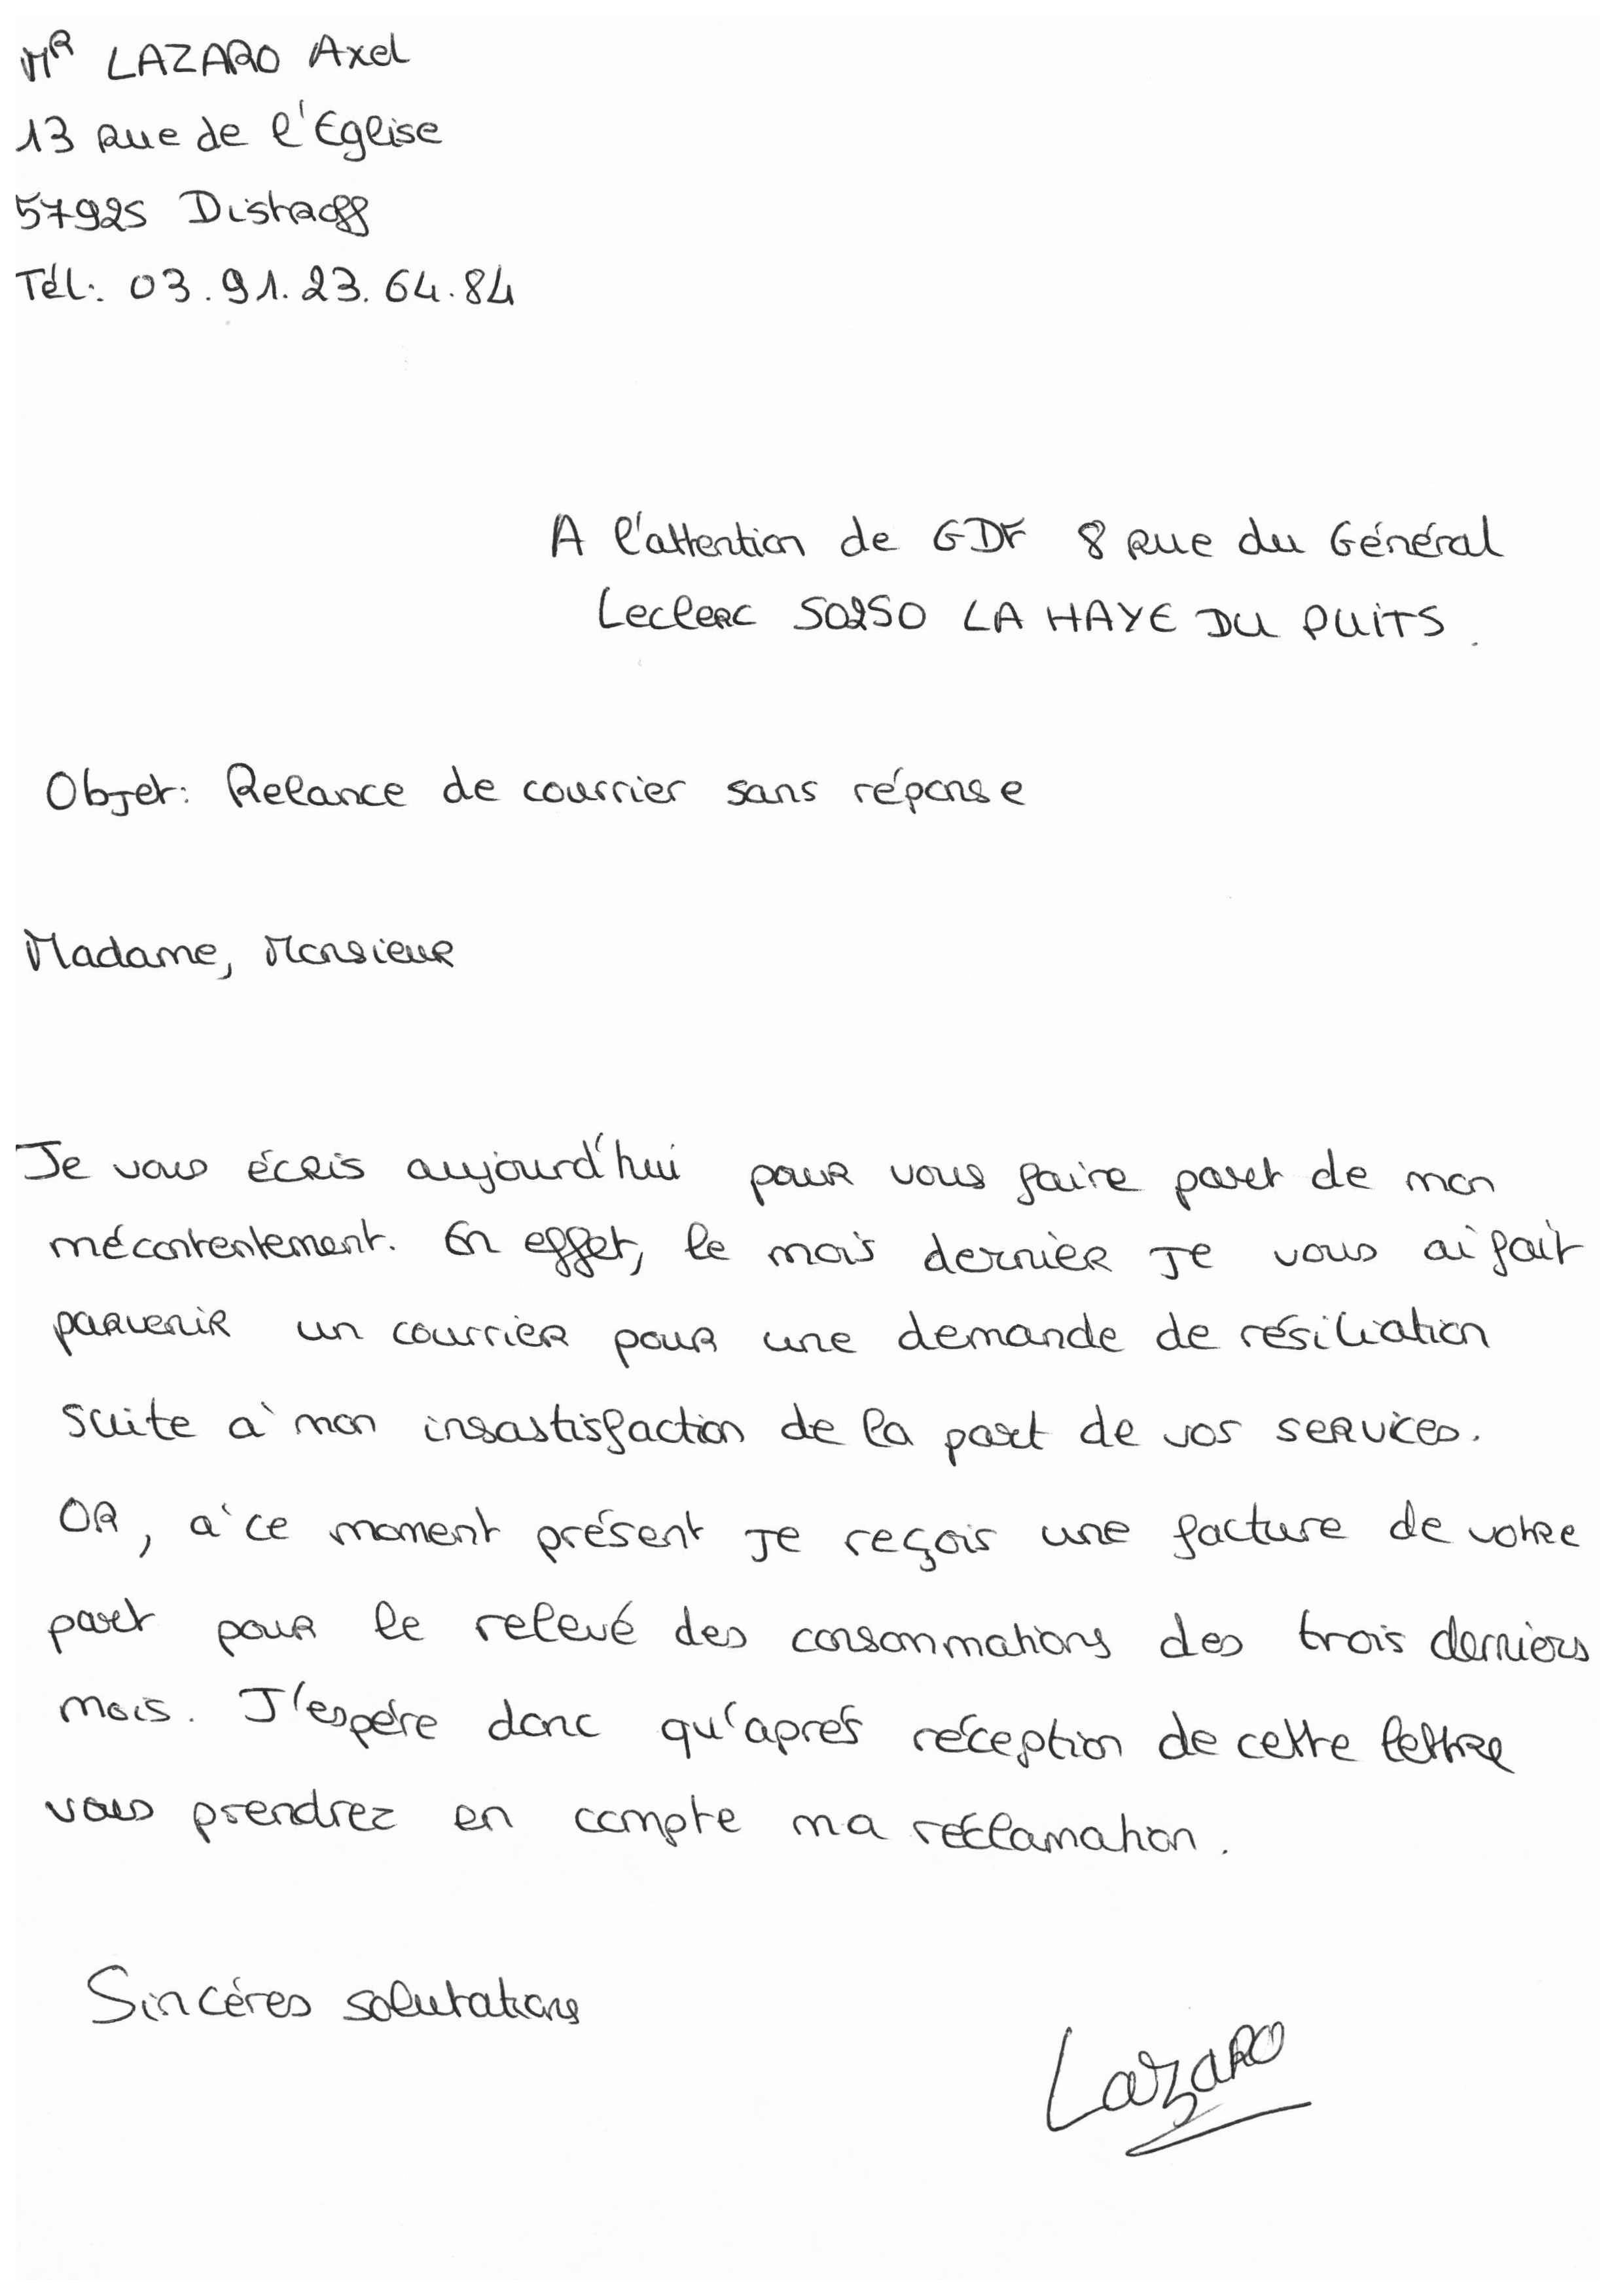 MR LAZARO Axel
13 Rue de l'Eglise
57925 Distroff
Tél: 03.91.23.64.84
A l'attention de GDF 8 Rue du Général
Leclerc 50250 LA HAYE DU PUITS.
Objet: Relance de courrier sans réponse
Madame, Monsieur
Je vous écris aujourd'hui pour vous faire part de mon
mécontentement. En effet, le mois dernier je vous ai fait
parvenir un courrier pour une demande de résiliation
suite à mon insastisfaction de la part de vos services.
OR, à ce moment présent je reçois une facture de votre
part pour le relevé des consommations des trois derniers
mois. J'espére donc qu'aprés réception de cette lettre
vous prendrez en compte ma réclamation.
Sincéres salutations
Lazaro